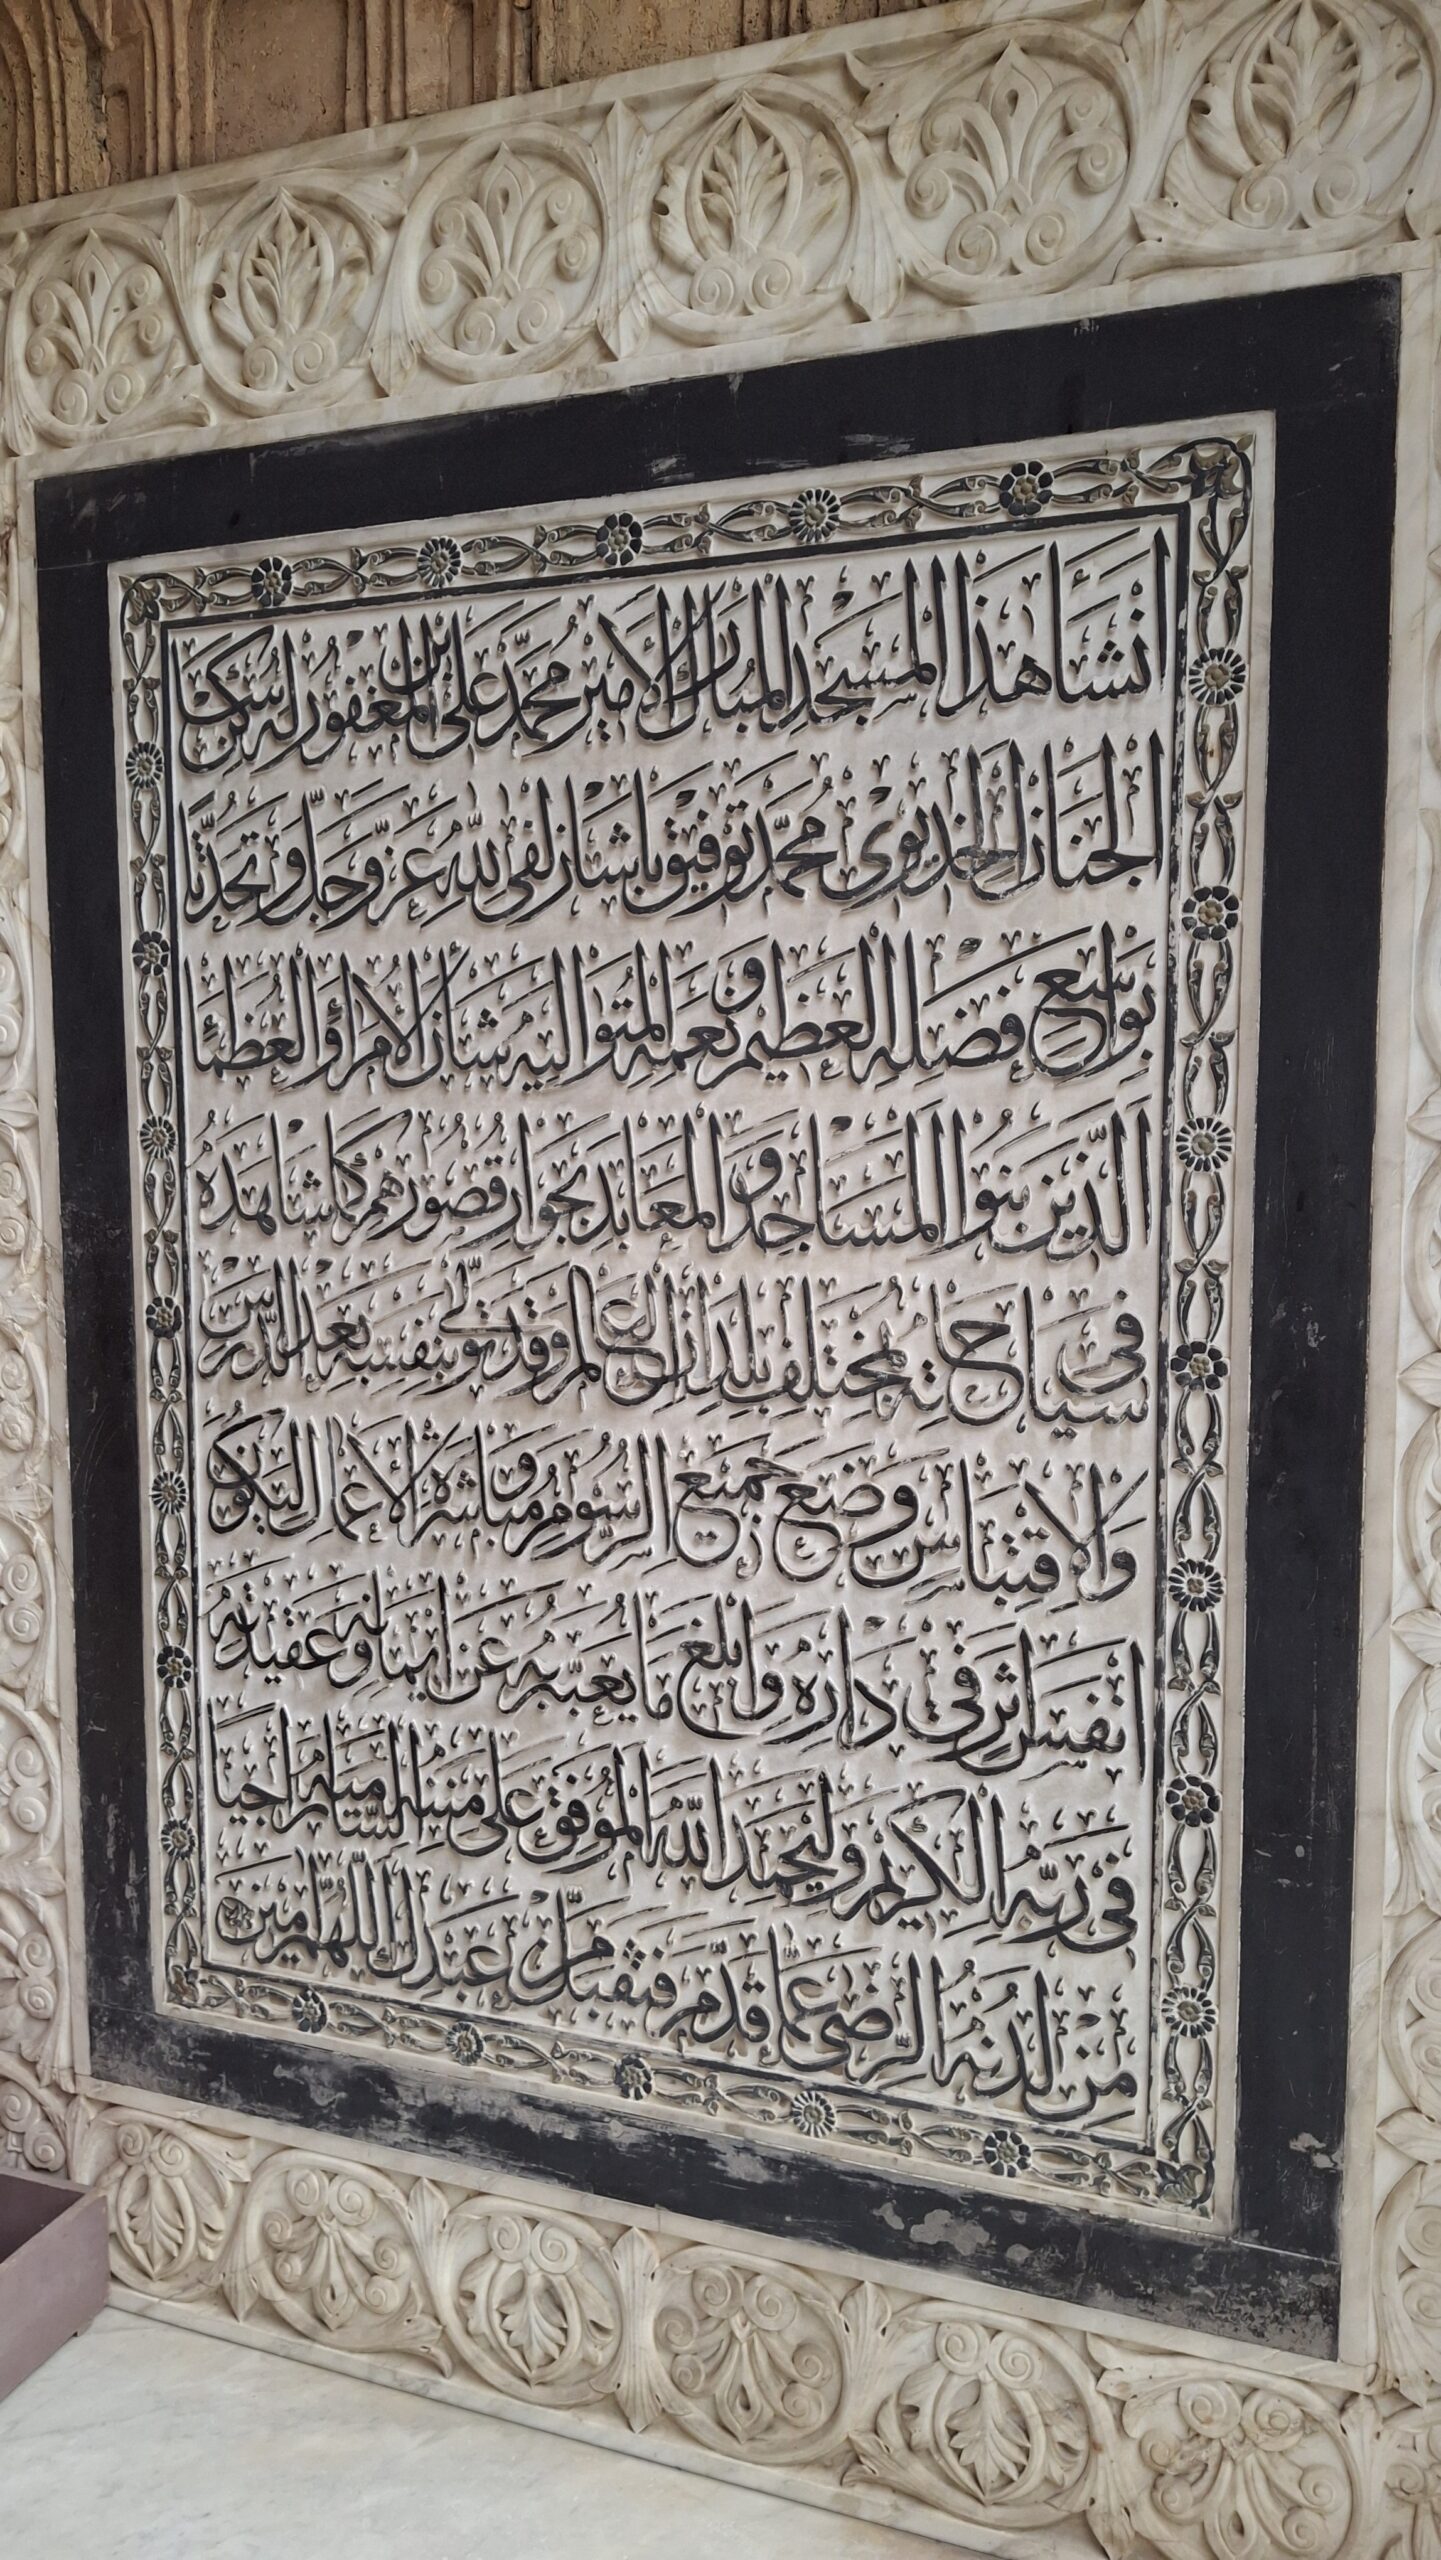 انشَأَ هذَا المَسْجِدَ المُبارَكَ الأَمِير مُحَمَّد عَلى ابْن المَغْفُور لَهُ سَاكِن
الجِنَان الخِديْوى مُحَمَّد تَوفِيق بَاشَا زلفى للهِ عَزَّ وَجَلَّ وَتحَدُّثًا
بِوَاسِعِ فَضْلِهِ العَظِيمِ وَنِعَمِهِ المُتَوَاليَه شَأن الأُمَراءِ وَالعُظَمَاءِ
الَّذِينَ بَنَوُا المَسَاجِدَ وَالمَعَابِدَ بِجَوَارِ قُصُورِهِمْ كَمَا شَاهَدَهُ
فى سيَاحَاتِهِ بمُخْتَلِفِ بُلدَانِ العَالَم وَقَدْ تَوَلَّى بِنَفْسِهِ بَعْدَ الدَّرْسِ
وَالاقتِبَاسِ وَضْعَ جَمِيعِ الرُّسُومِ وَمُبَاشَرَةَ الأعْمَالِ لِيَكُونَ
انفَسَ اثَرٍ فِي دَارِهِ وَابْلَغَ مَا يُعَبِّرُ بهِ عَنْ ايمَانِهِ وَعَقِيدَتِهِ
فى رَبِّهِ الكَرِيمِ وَلْيَحْمَدَ اللهَ المُوَفِّقَ عَلَى مِنَنِهِ السَّامِيَه رَاجِيًا
مِنْ لدُنهُ الرِّضى عَمَّا قَدَّمَ فَتَقَبَّلْ مِنْ عَبْدِكَ اللَّهُمَّ آمِينَ